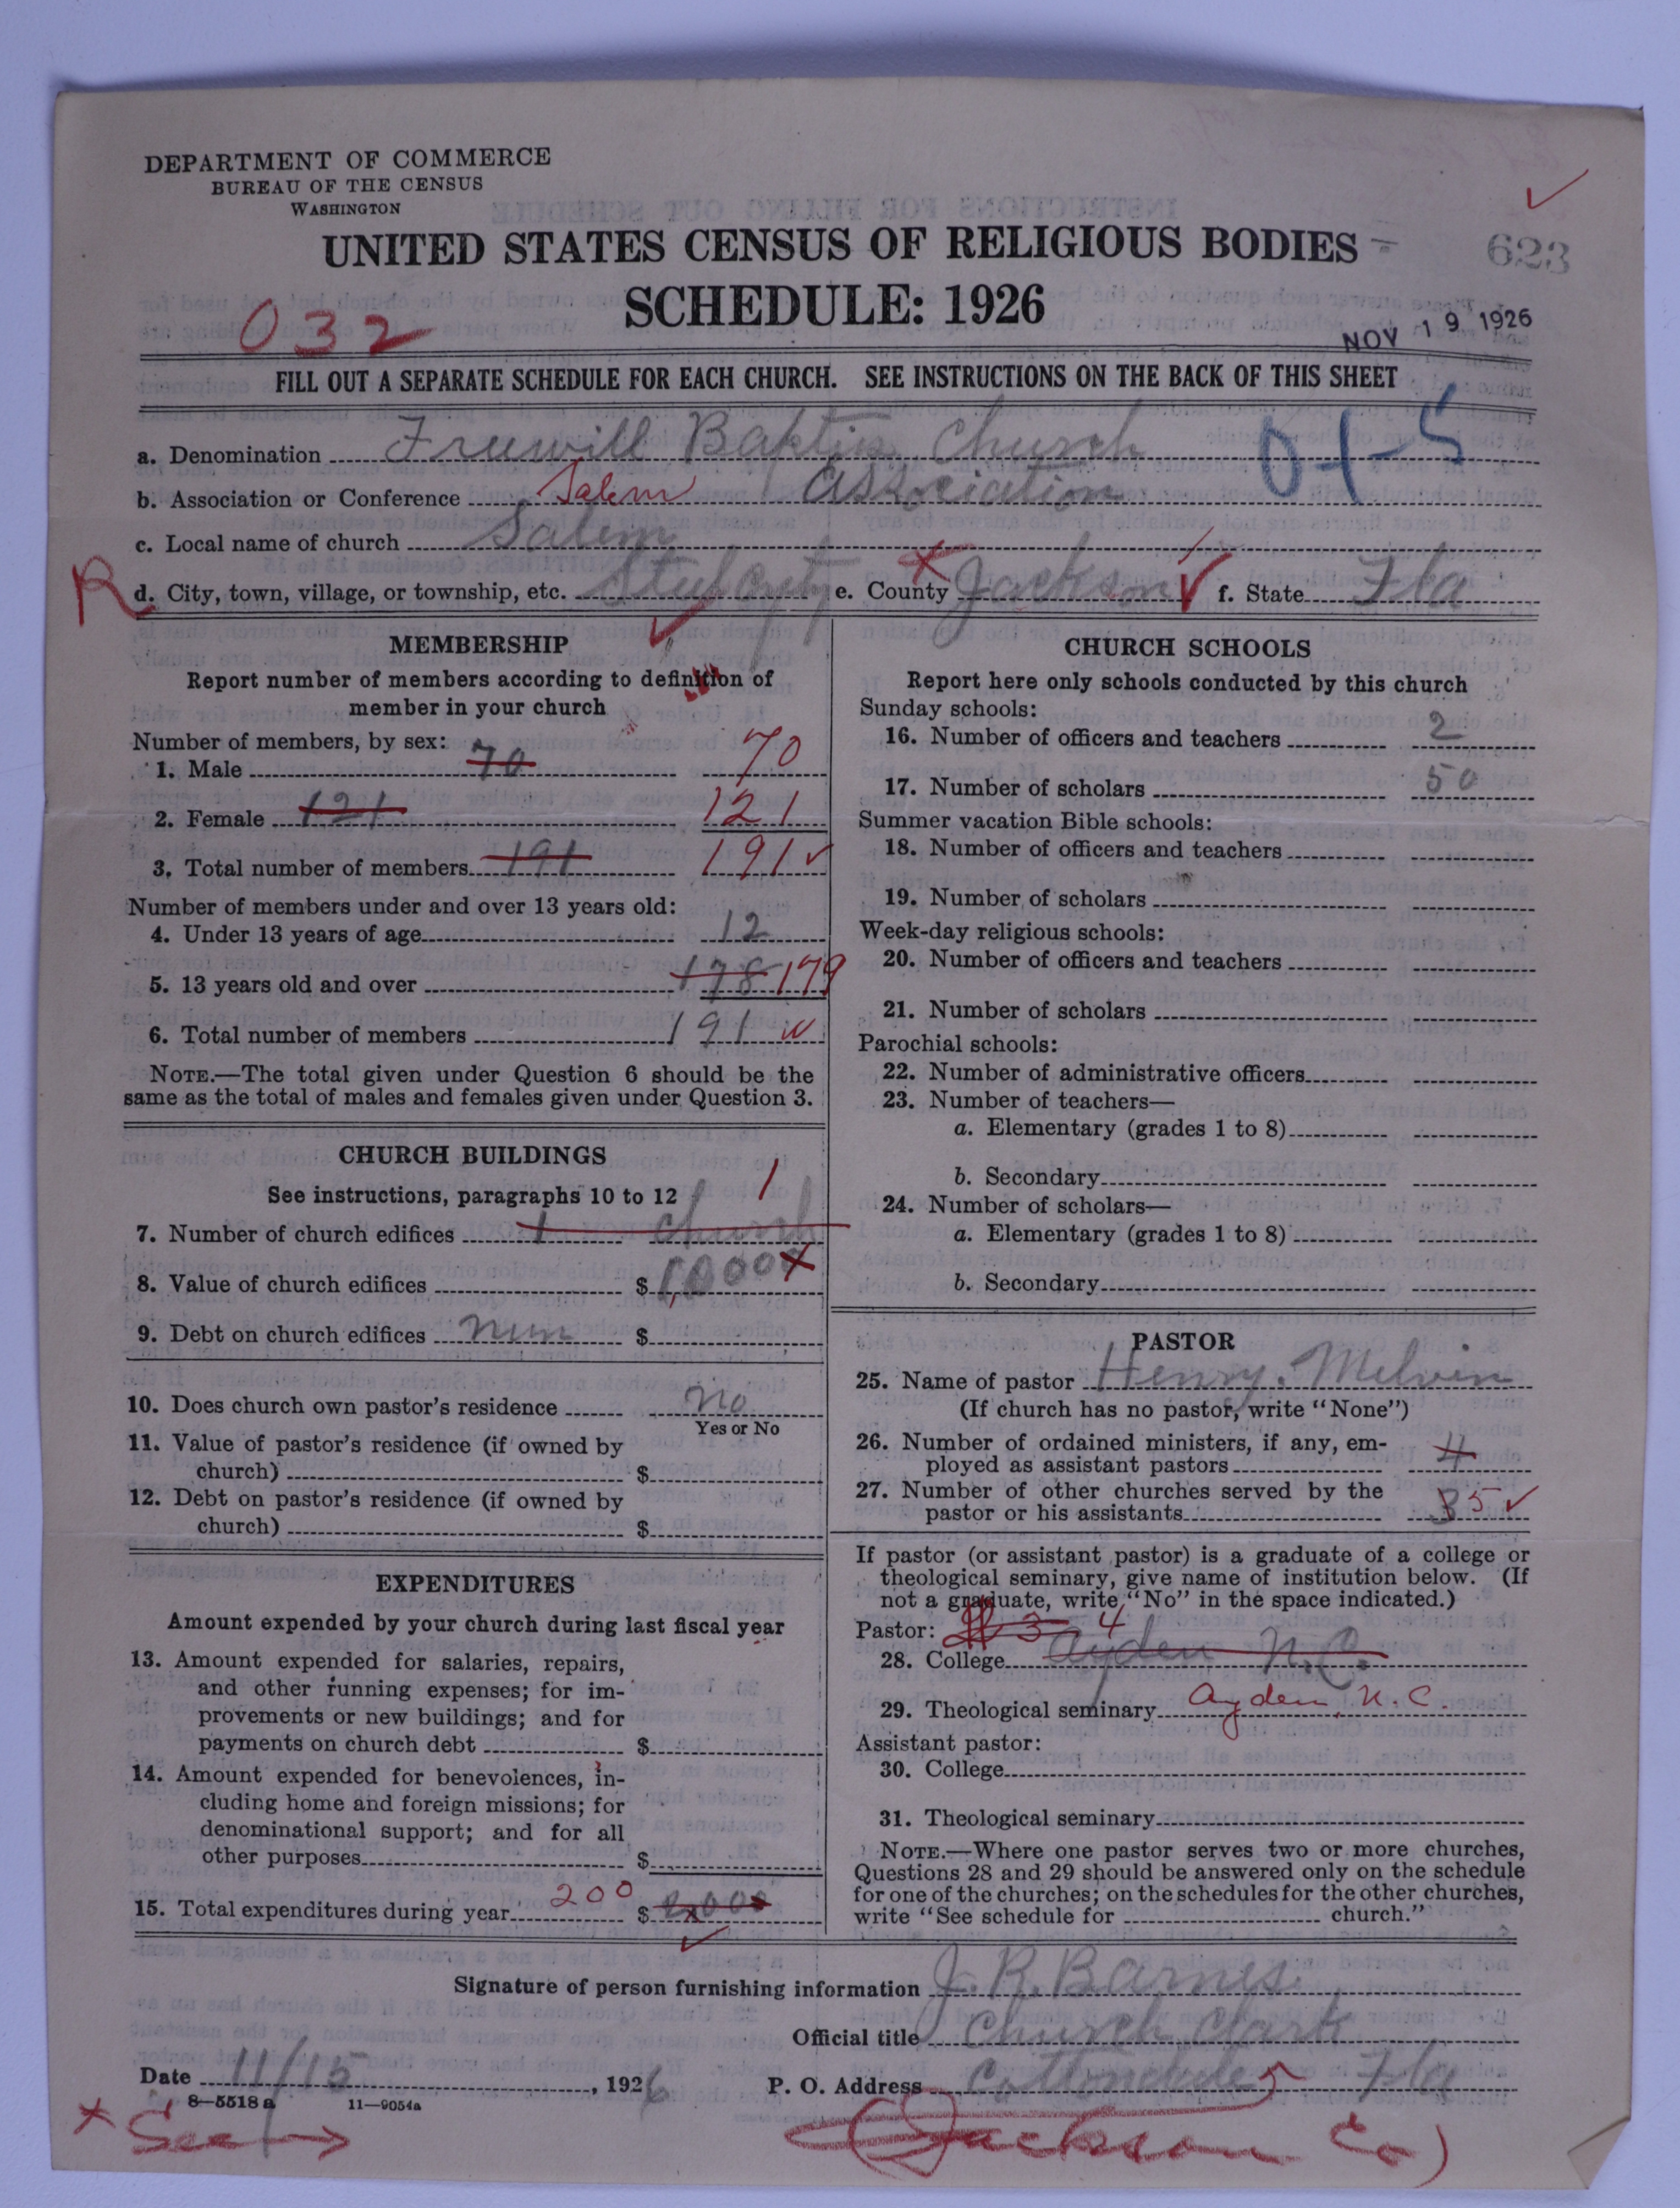 DEPARTMENT OF COMMERCE
BUREAU OF THE CENSUS
WASHINGTON
UNITED STATES CENSUS OF RELIGIOUS BODIES
623
SCHEDULE: 1926
032
NOV 19 1926
FILL OUT A SEPARATE SCHEDULE FOR EACH CHURCH. SEE INSTRUCTIONS ON THE BACK OF THIS SHEET
a. Denomination Freewill Baptis Church
01-5
b. Association or Conference Salem Association
c. Local name of church Salem
R d. City, town, village, or township, etc. Steel City e. County Jackson f. State Fla
MEMBERSHIP
Report number of members according to definition of
member in your church
Number of members, by sex:
1. Male 70 70
2. Female 121 121
3. Total number of members 191 191
Number of members under and over 13 years old:
4. Under 13 years of age 12
5. 13 years old and over 178 179
6. Total number of members 191
NOTE.—The total given under Question 6 should be the
same as the total of males and females given under Question 3.
CHURCH BUILDINGS
See instructions, paragraphs 10 to 12 1
7. Number of church edifices 1 church
8. Value of church edifices $
9. Debt on church edifices nun $
10. Does church own pastor's residence no
Yes or No
11. Value of pastor's residence (if owned by
church) $
12. Debt on pastor's residence (if owned by
church) $
EXPENDITURES
Amount expended by your church during last fiscal year
13. Amount expended for salaries, repairs,
and other running expenses; for im-
provements or new buildings; and for
payments on church debt $
14. Amount expended for benevolences, in-
cluding home and foreign missions; for
denominational support; and for all
other purposes $
15. Total expenditures during year 200 $
CHURCH SCHOOLS
Report here only schools conducted by this church
Sunday schools:
16. Number of officers and teachers 2
17. Number of scholars 50
Summer vacation Bible schools:
18. Number of officers and teachers
19. Number of scholars
Week-day religious schools:
20. Number of officers and teachers
21. Number of scholars
Parochial schools:
22. Number of administrative officers
23. Number of teachers—
a. Elementary (grades 1 to 8)
b. Secondary
24. Number of scholars—
a. Elementary (grades 1 to 8)
b. Secondary
PASTOR
25. Name of pastor Henry. Melvin
(If church has no pastor, write "None")
26. Number of ordained ministers, if any, em-
ployed as assistant pastors 4
27. Number of other churches served by the
pastor or his assistants 3 5
If pastor (or assistant pastor) is a graduate of a college or
theological seminary, give name of institution below. (If
not a graduate, write "No" in the space indicated.)
Pastor: 3 4
28. College Ayden N.C.
29. Theological seminary Ayden, N.C.
Assistant pastor:
30. College
31. Theological seminary
NOTE.—Where one pastor serves two or more churches,
Questions 28 and 29 should be answered only on the schedule
for one of the churches; on the schedules for the other churches,
write "See schedule for church."
Signature of person furnishing information J. R. Barnes.
Official title Church Clark
Date 11/15, 1926 P. O. Address Cottondale Fla
8—5518 a 11—9054a
See → (Jackson Co)